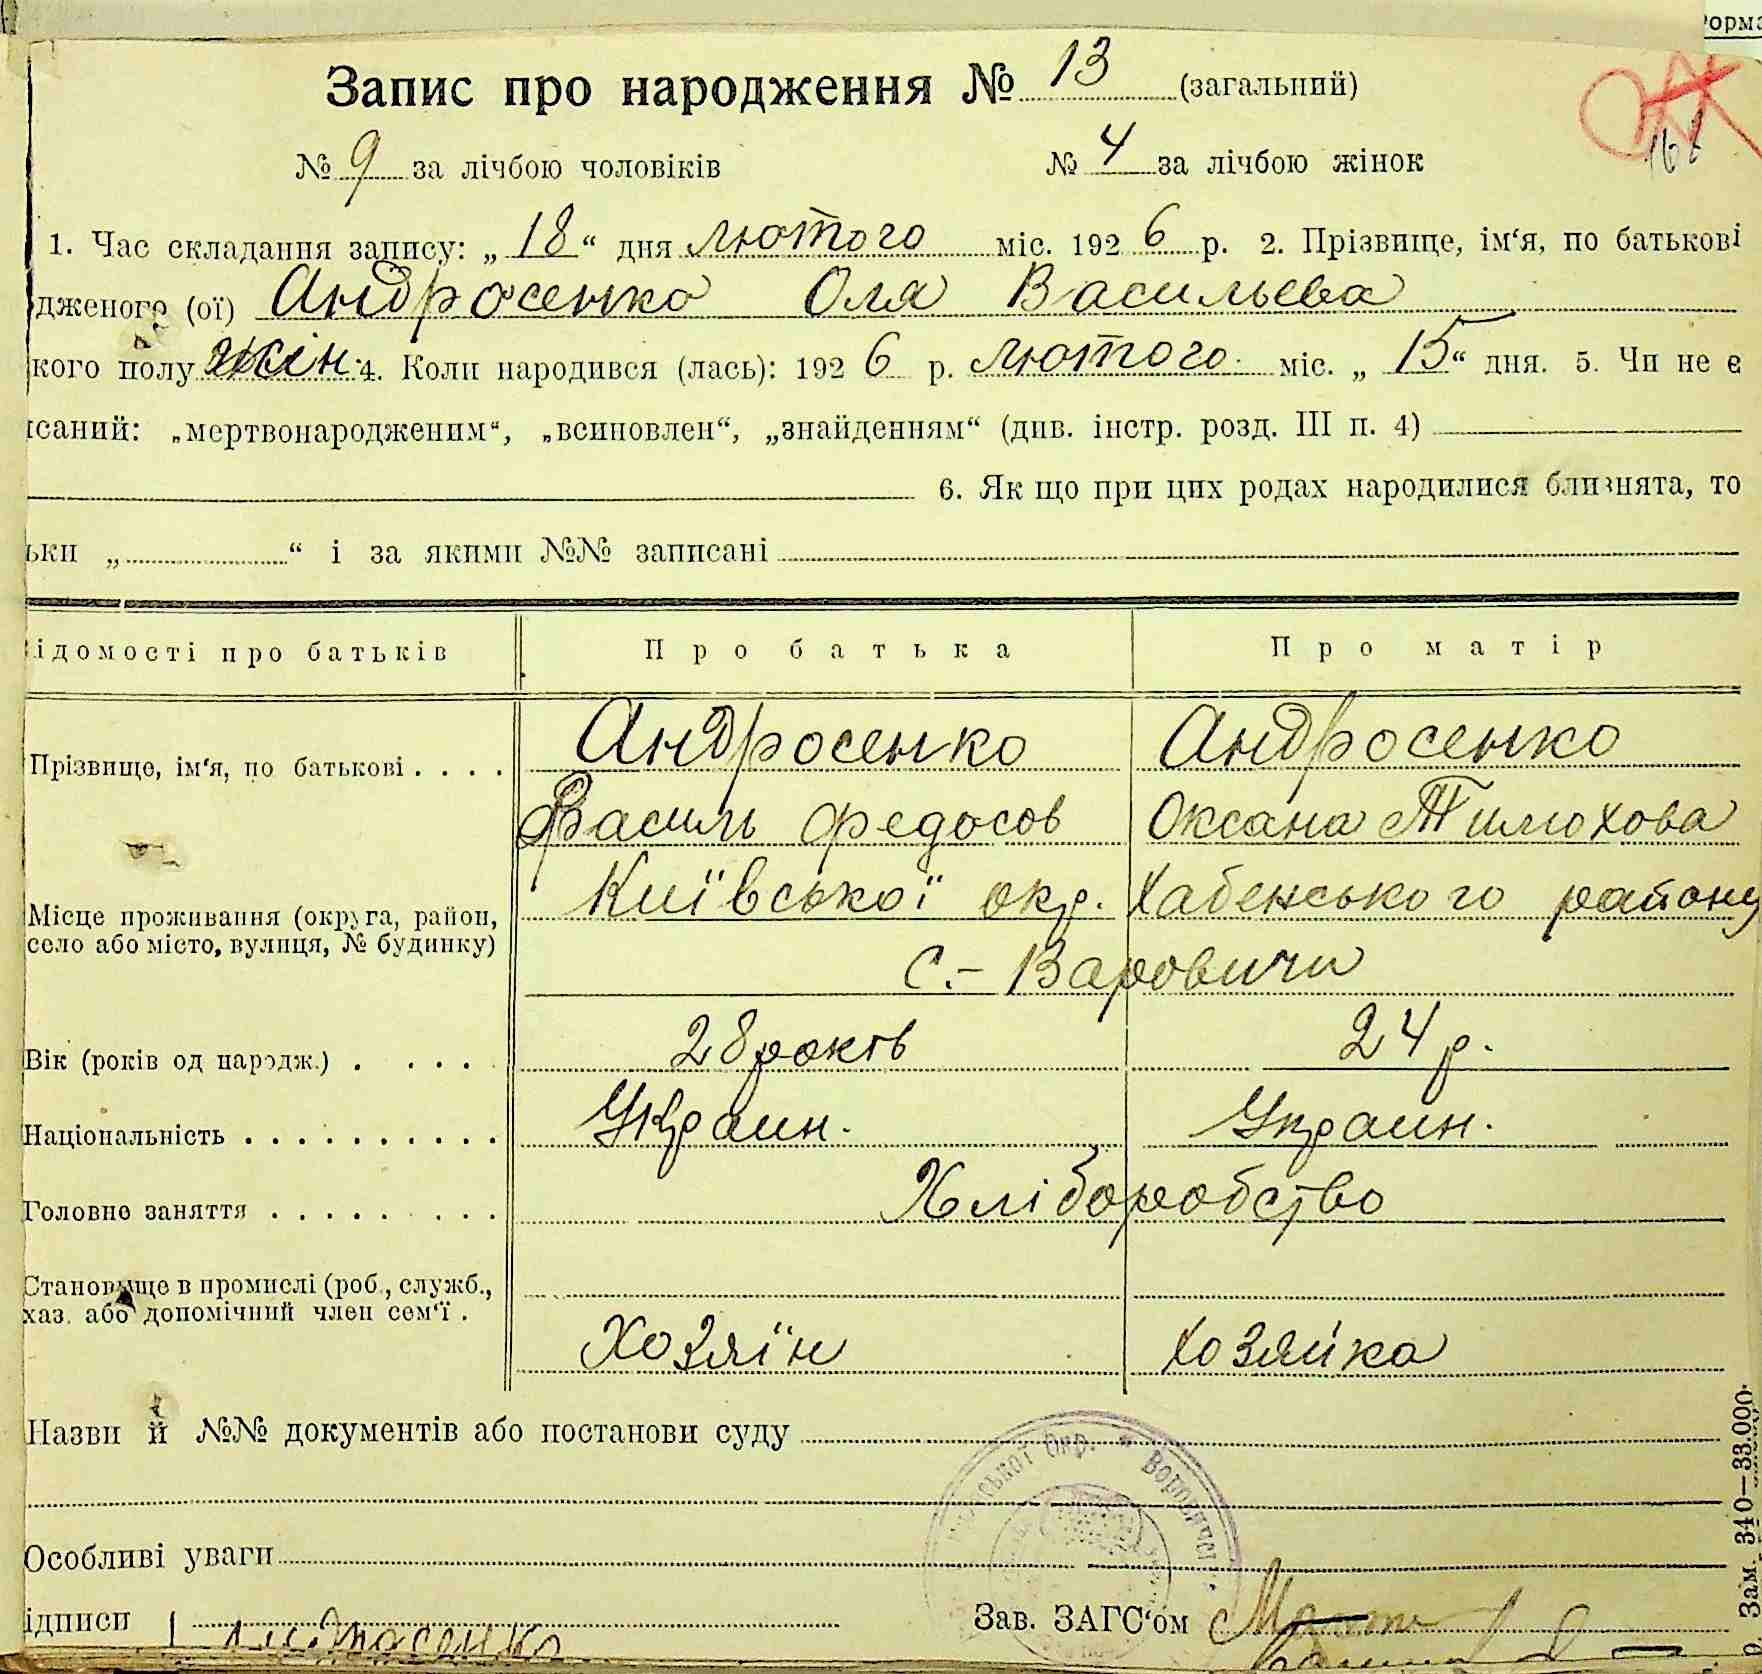 Форма
Запис про народження № 13 (загальний)
№ 9 за лічбою чоловіків № 4 за лічбою жінок
1. Час складання запису: „ 18 “ дня лютого міс. 192 6 р. 2. Прізвище, ім‘я, по батькові
дженого (ої) Андросенко Оля Васильева
кого полу жін. 4. Коли народився (лась): 192 6 р. лютого міс. „ 15 “ дня. 5. Чи не є
исаний: „мертвонародженим“, „всиновлен“, „знайденням“ (див. інстр. розд. III п. 4)
6. Як що при цих родах народилися близнята, то
ьки „ “ і за якими №№ записані
ідомості про батьків Про батька Про матір
Прізвище, ім‘я, по батькові . . . . Андросенко Андросенко
Василь Федосов Оксана Тимохова
Місце проживання (округа, район, Київської окр. Хабенського району
село або місто, вулиця, № будинку)
с.- Варовичи
Вік (років од народж.) . . . . . 28 років 24 р.
Національність . . . . . . . . . . Украин. Украин.
Головне заняття . . . . . . . . . Хліборобство
Становище в промислі (роб., служб.,
хаз. або допомічний член сем‘ї .
Хозяїн Хозяйка
Назви й №№ документів або постанови суду
Особливі уваги
ідписи Андросенко Зав. ЗАГС‘ом
Зам. 340—33.000.